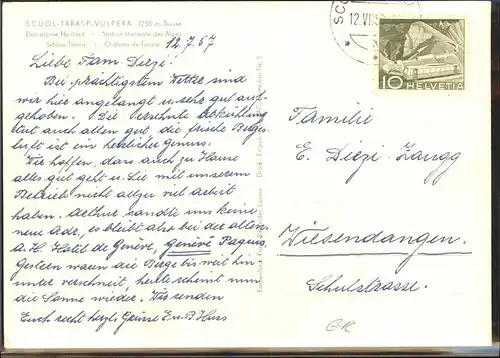 SCUOL-TARASP-VULPERA 1250 m, Suisse
Das alpine Heilbad • Station thermale des Alpes
Schloss Tarasp • Château de Tarasp
12.7.57
Liebe Fam. Diezi!
Bei prächtigstem Wetter sind
wir hier angelangt u. sehr gut auf-
gehoben. Die ersehnte Abkühlung
tut auch allen gut, die frische Berges-
luft ist ein herrlicher Genuss.
Wir hoffen, dass auch zu Hause
alles gut geht u. Sie mit unserem
Betrieb nicht allzu viel arbeit
haben. Arthur sandte uns keine
neue Adr., es bleibt also bei der alten
a. H. Hotel de Genève, genève Paquis
Gestern waren die Berge bis weit hin-
unter verschneit, heute scheint nun
die Sonne wieder. Wir senden
Euch recht herzl. Grüsse E. u. B. Huss
12.VII.5
10
HELVETIA
Familie
E. Diezi-Zaugg
Wiesendangen.
Schulstrasse.
GR